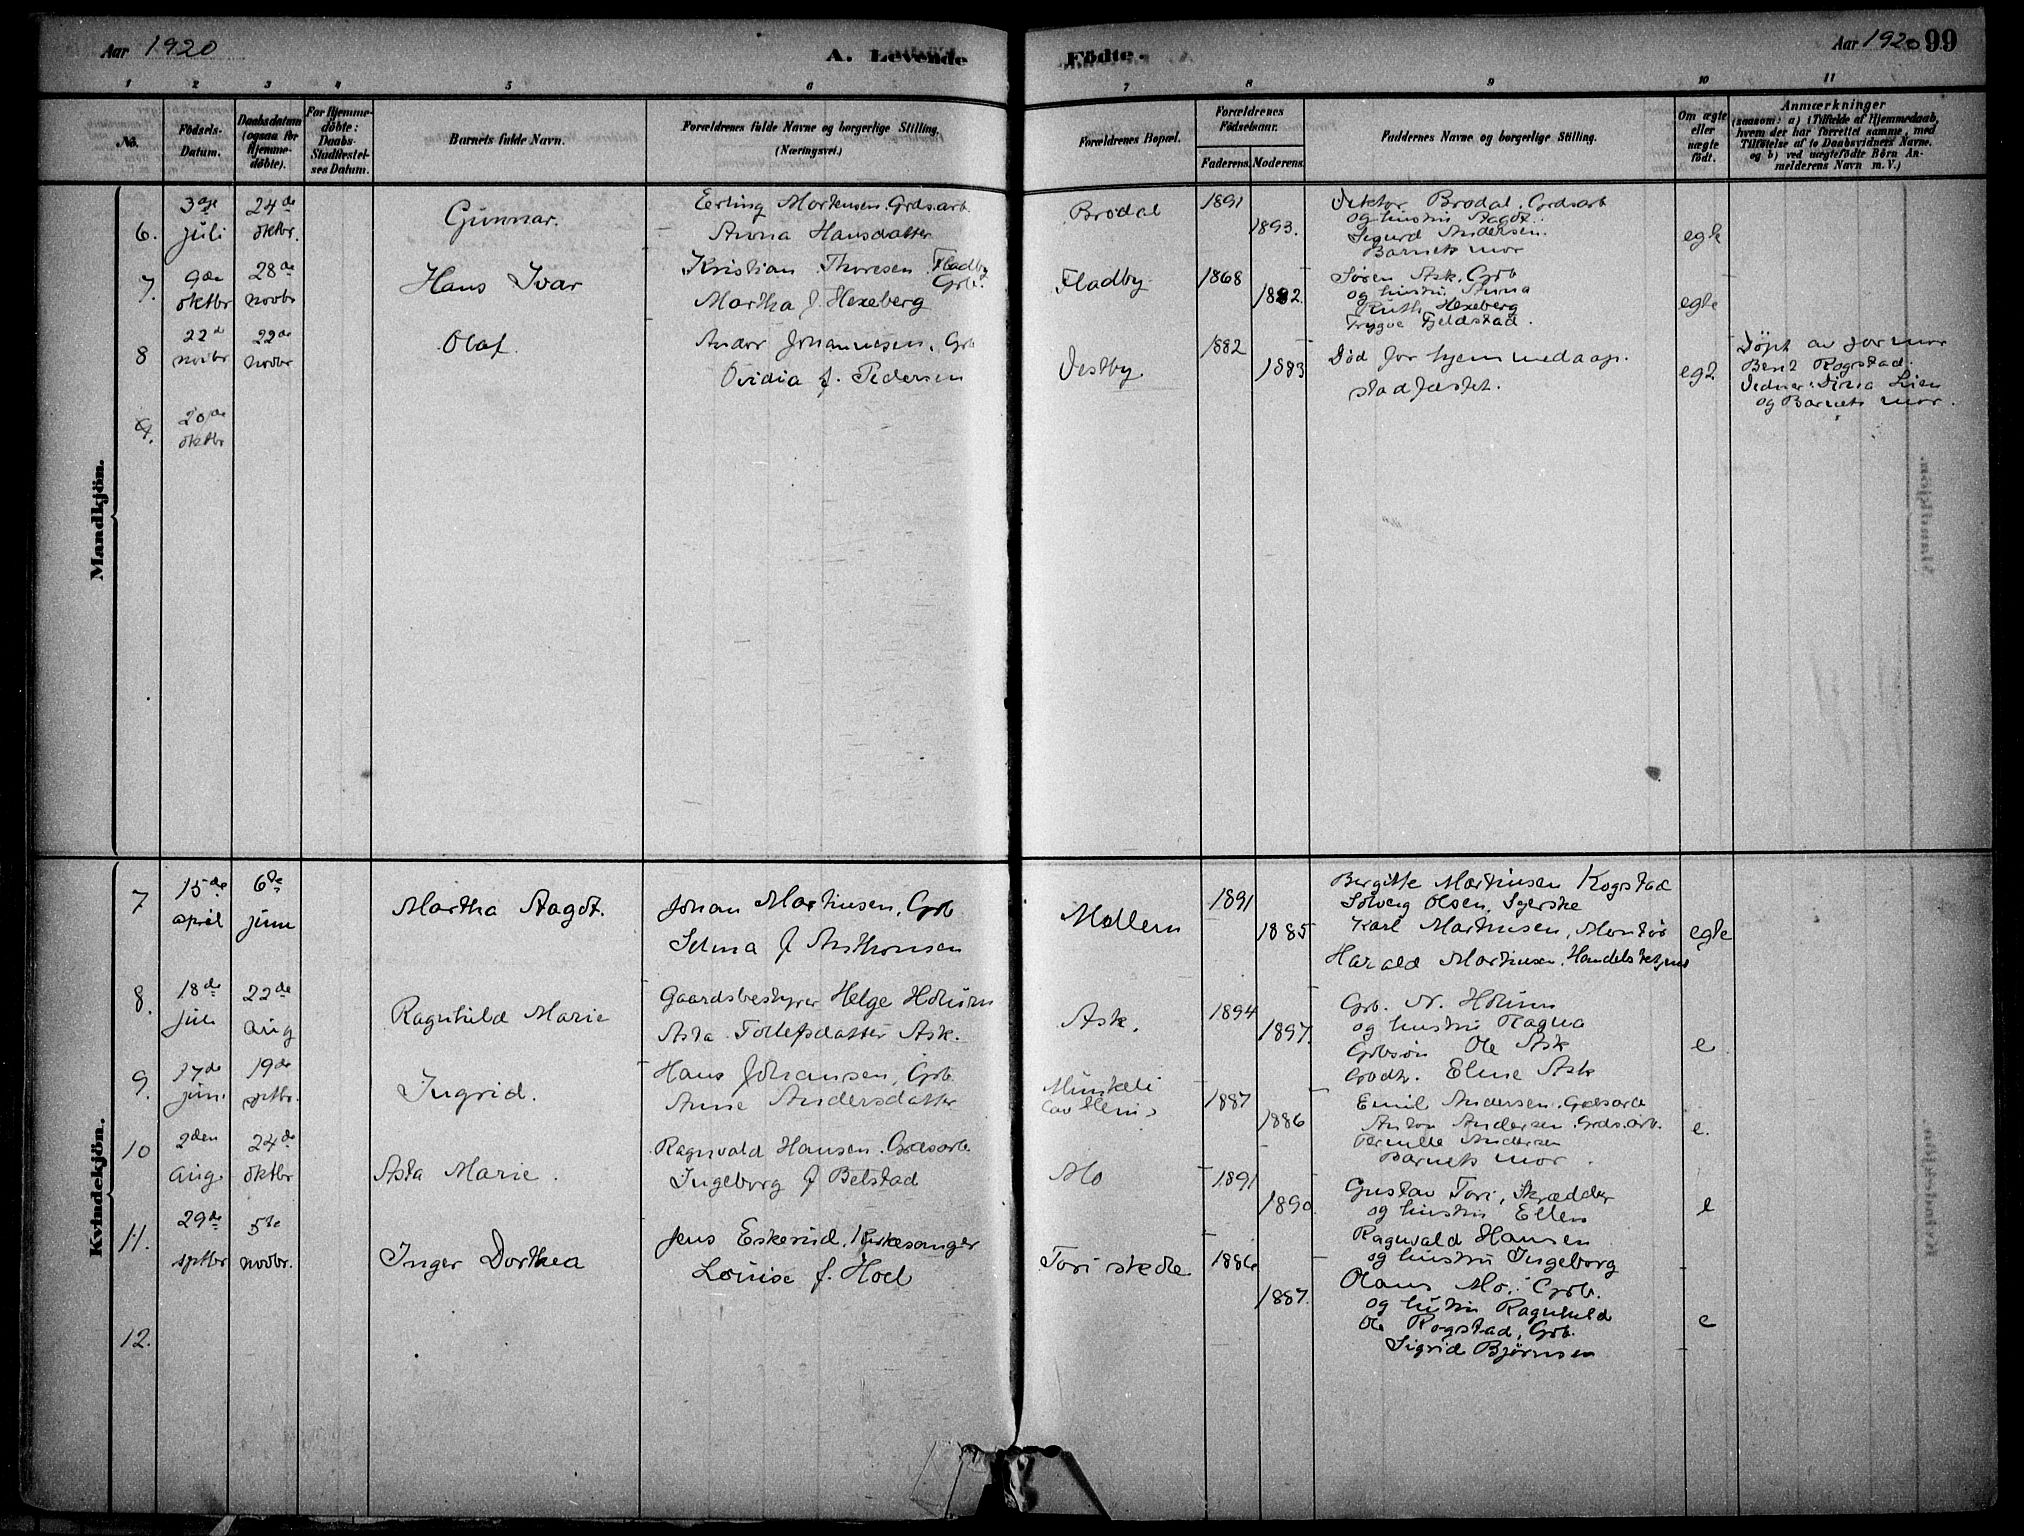 Aar 1920
A. Levende
Födte.
Aar 1920 99
1 2 3 4 5 6 7 8 9 10 11
No.
Födsels-Datum.
Daabsdatum (ogsaa for Hjemme-döbte).
For Hjemme-döbte: Daabs-Stadfæstel-ses Datum.
Barnets fulde Navn.
Forældrenes fulde Navne og borgerlige Stilling.
(Næringsvei.)
Forældrenes Bopæl.
Forældrenes Födselsaar.
Faderens. Moderens.
Faddernes Navne og borgerlige Stilling.
Om ægte eller uægte födt.
Anmærkninger
(saasom: a) i Tilfælde af Hjemmedaab, hvem der har forrettet samme, med Tilföielse af to Daabsvidners Navne. og b) ved uægtefödte Börn An-melderens Navn m. V.)
Mandkjön.
6. 3dje juli 24de oktbr. Gunnar. Erling Mortensen. Grdsarb.
Anna Hansdatter
Brodal 1891 1893.
Viktor Brodal. Grdsarb
og hustru Aagot.
Sigurd Andersen.
Barnets mor
egte
7. 9de oktbr 28de novbr Hans Ivar Kristian Thoresen Fladby
Grb.
Martha f. Hexeberg
Fladby 1868 1882.
Søren Ask. Grb
og hustru Anna
Ruth Hexeberg
Trygve Fjeldstad.
egte
8 22de novbr 22de novbr Olaf Andor Johannesen. Grb
Ovidia f. Pedersen
Vestby 1882 1883
Død før hjemmedaap.
stadfæstet.
egte
Døpt av jormor
Berit Rogstad.
Vidner: Dina Lien
og Barnets mor.
9. 20de oktbr
Kvindekjön.
7 15de april 6te juni Martha Aagot. Johan Martinsen, Grb
Selma f Anthonsen
Mollern 1891 1885
Bergitte Martinsen Rogstad
Solveig Olsen, Syerske
Karl Martinsen, Montør
Harald Martinsen, Handelsbetjent
egte
8. 18de juli 22de aug Ragnhild Marie Gaardsbestyrer Helge Holum
Asta Tollefsdatter Ask.
Ask. 1894 1897.
Grb. N. Holum
og hustru Ragna
Grbsøn Ole Ask
Grdtr. Eline Ask
e
9. 17de juni 19de sptbr. Ingrid. Hans Johansen, Grb
Anne Andersdatter
1887 1886
Emil Andersen. Grdsarb
Anton Andersen. Grdsarb.
Pernille Andersen
Barnets mor.
e.
10 2den aug. 24de oktbr Asta Marie. Ragnvald Hansen. Grdsarb.
Ingeborg f Belstad
Mo 1891 1890.
Gustav Tori, Skrædder
og hustru Ellen
Ragnvald Hansen
og hustru Ingeborg
e
11. 29de sptbr 5te novbr. Inger Dorthea Jens Eskerud, Kirkesanger
Louise f. Hoel
Tori skole 1886 1887.
Olaus Mo. Grb.
og hustru Ragnhild
Ole Rogstad, Grb.
Sigrid Bjørnsen
e
12.